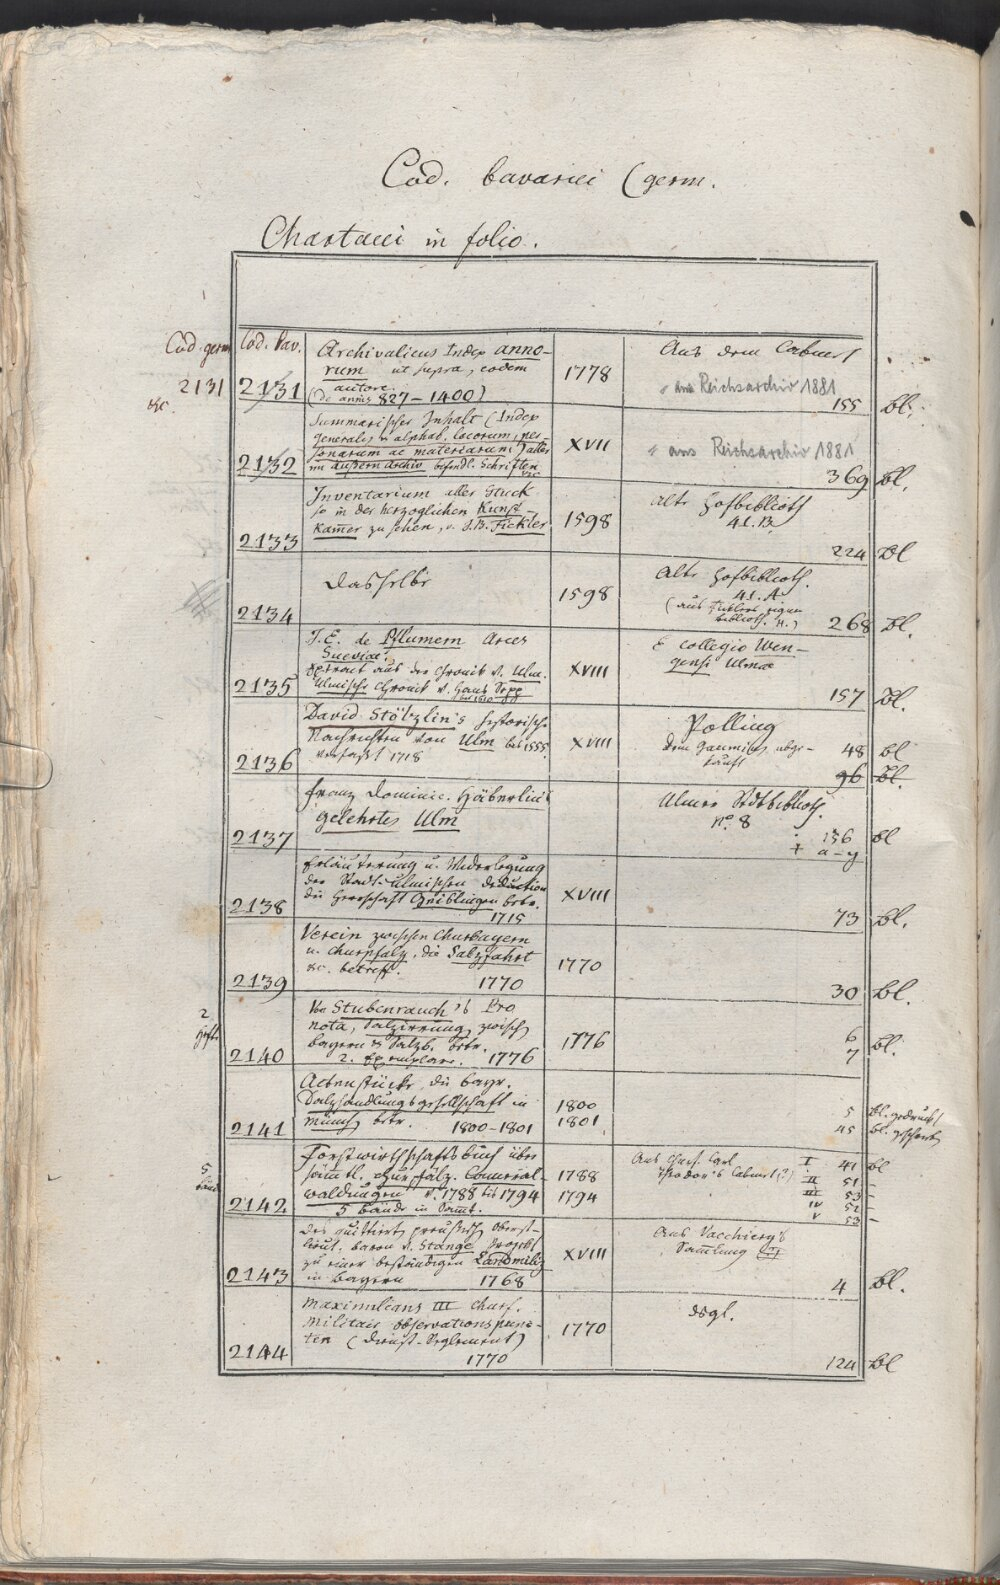 Cod. bavarici (germ.
Chartacei in folio.
Cod. germ
2131
&c.
Cod. Bav.
2131
Archivalicus Index anno-
rum ut supra, eodem
autore
(de annis 827 – 1400)
1778
Aus dem Cabinet
ans Reichsarchiv 1881
155 Bl.
2132
Summarischer Inhalt (Index
generalis alphab. locorum, per-
sonarum ac materiarum) aller
im äußern Archiv befindl. Schriften
XVII
ans Reichsarchiv 1881
369 Bl.
2133
Inventarium aller Stuck
so in der herzoglichen Kunst-
kamer zu sehen, v. J.B. Fickler
1598
Alte Hofbiblioth.
41.B.
224 Bl
2134
dasselbe
1598
Alte Hofbiblioth.
41.A
(aus Ficklers eigner
Biblioth. H.)
268 Bl.
2135
J. E. de Pflumern Arces
Sueviae.
Extract aus der Chronik v. Ulm.
Ulmische Chronik v. Hans Sepp
XVIII
E collegio Wen-
gensi Ulmae
157 Bl.
2136
David Stölzlin's historische
Nachrichten von Ulm bis 1555
verfaßt 1718
XVIII
Polling
48 Bl
96 Bl.
2137
Franz Dominic. Häberlins
gelehrtes Ulm
Ulmer Stdtbiblioth.
No. 8
136 Bl
+ a–y
2138
Erläuterung u. Widerlegung
der Stadt-Ulmischen Deduction
die Herrschaft betr.
1715
XVIII
73 Bl.
2139
Verein zwischen Churbayern
u. Churpfalz, die Salzfahrt
&c. betreff.
1770
1770
30 Bl.
2
Hefte
2140
Von Stubenrauch's Pro
nota, Salzirrung zwisch
Bayern & Salzb. betr.
2. Exemplare. 1776
1776
6
7 Bl.
2141
Actenstücke, die bayr.
Salzhandlungsgesellschaft in
Münch betr. 1800–1801
1800
1801
5 Bl. gedruckt
45 Bl. geschrieb
5
Bände
2142
Forstwirthschaftsbuch über
sämtl. Churpfälz. Cameral-
waldungen v. 1788 bis 1794
5 Bände in Sammt.
1788
1794
Aus Churf. Carl
Theodor's Cabinet (?)
I 41 Bl
II 51 –
III 53 –
IV 52 –
V 53 –
2143
Des quittiert. preußisch Oberst-
lieut. Baron v. Stange Project
zu einer beständigen Landmiliz
in Bayern 1768
XVIII
Aus Vacchierys
Sammlung (?)
4 Bl.
2144
Maximilians III Churf.
Militair observationspunc-
ten (Dienst-Reglement)
1770
1770
desgl.
124 Bl